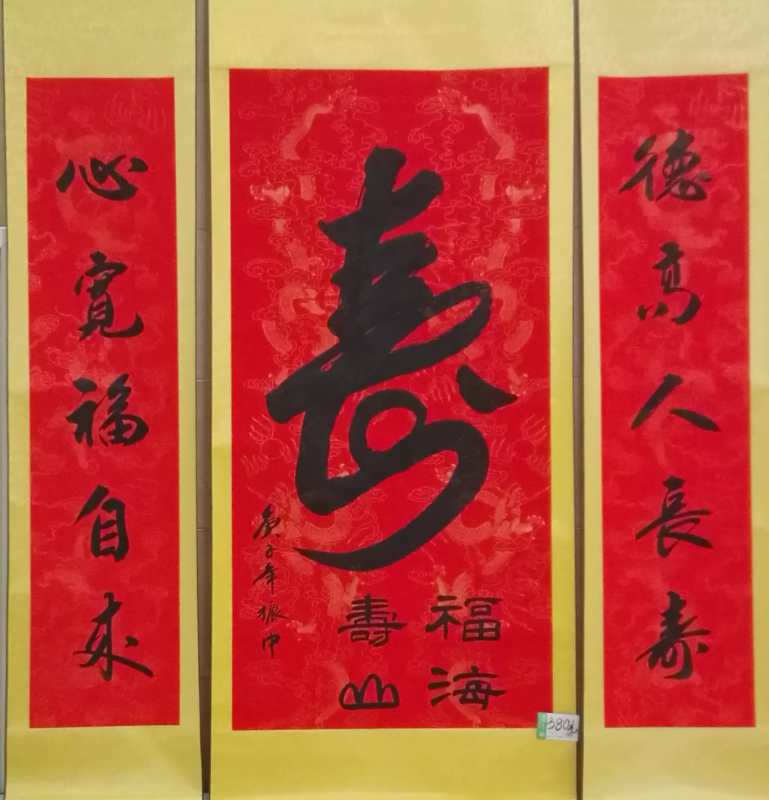 德高人長寿
寿
福海
壽山
庚子年振中
心寬福自来